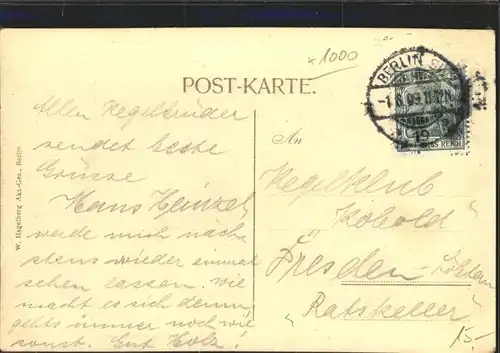 x 1000
BERLIN
-1.6.09.11-12V.
19
REICH
POST-KARTE.
W. Hagelberg Akt.-Ges., Berlin
Allen Kegelbrüder
sendet beste
Grüsse
Hans Heinzel
werde mich näch
stens wieder einmal
sehen lassen. wie
macht es sich denn,
gehts immer noch wie
sonst. Gut Holz!
An
Kegelklub
„Kobold"
Dresden
„Ratskeller"
15.-